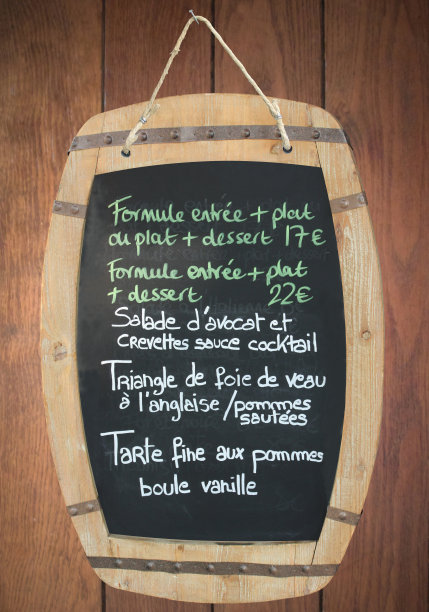 Formule entrée + plat
ou plat + dessert 17€
Formule entrée + plat
+ dessert 22€
Salade d'avocat et
crevettes sauce cocktail
Triangle de foie de veau
à l'anglaise / pommes
sautées
Tarte fine aux pommes
boule vanille